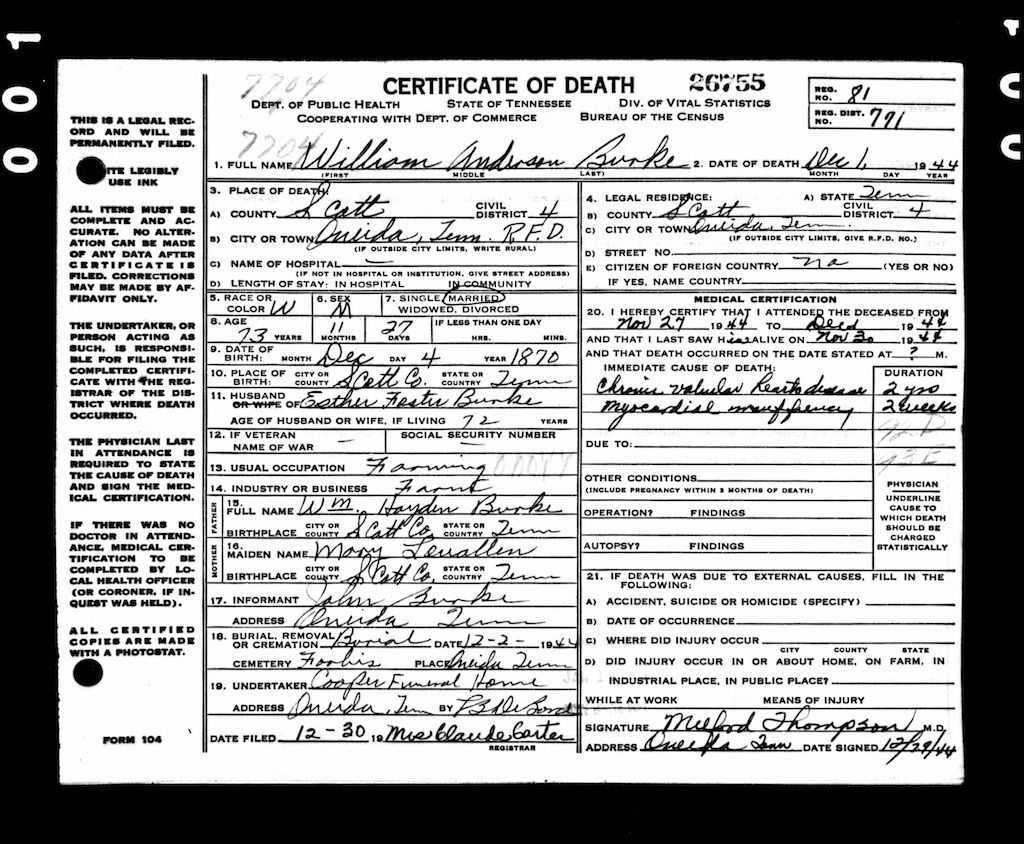 001
7704
CERTIFICATE OF DEATH 26755
DEPT. OF PUBLIC HEALTH STATE OF TENNESSEE DIV. OF VITAL STATISTICS
COOPERATING WITH DEPT. OF COMMERCE BUREAU OF THE CENSUS
REG. NO. 81
REG. DIST. NO. 771
7704
THIS IS A LEGAL REC-
ORD AND WILL BE
PERMANENTLY FILED.
ITE LEGIBLY
USE INK
ALL ITEMS MUST BE
COMPLETE AND AC-
CURATE. NO ALTER-
ATION CAN BE MADE
OF ANY DATA AFTER
CERTIFICATE IS
FILED. CORRECTIONS
MAY BE MADE BY AF-
FIDAVIT ONLY.
THE UNDERTAKER, OR
PERSON ACTING AS
SUCH, IS RESPONSI-
BLE FOR FILING THE
COMPLETED CERTIFI-
CATE WITH THE REG-
ISTRAR OF THE DIS-
TRICT WHERE DEATH
OCCURRED.
THE PHYSICIAN LAST
IN ATTENDANCE IS
REQUIRED TO STATE
THE CAUSE OF DEATH
AND SIGN THE MED-
ICAL CERTIFICATION.
IF THERE WAS NO
DOCTOR IN ATTEND-
ANCE, MEDICAL CER-
TIFICATION TO BE
COMPLETED BY LO-
CAL HEALTH OFFICER
(OR CORONER, IF IN-
QUEST WAS HELD).
ALL CERTIFIED
COPIES ARE MADE
WITH A PHOTOSTAT.
FORM 104
1. FULL NAME William Anderson Burke 2. DATE OF DEATH Dec 1, 1944
(FIRST) MIDDLE LAST) MONTH DAY YEAR
3. PLACE OF DEATH:
A) COUNTY Scott CIVIL DISTRICT 4
B) CITY OR TOWN Oneida, Tenn. R.F.D.
(IF OUTSIDE CITY LIMITS, WRITE RURAL)
C) NAME OF HOSPITAL —
(IF NOT IN HOSPITAL OR INSTITUTION, GIVE STREET ADDRESS)
D) LENGTH OF STAY: IN HOSPITAL IN COMMUNITY
5. RACE OR COLOR W 6. SEX M 7. SINGLE MARRIED WIDOWED, DIVORCED
8. AGE 73 YEARS 11 MONTHS 27 DAYS IF LESS THAN ONE DAY HRS. MINS.
9. DATE OF BIRTH: MONTH Dec DAY 4 YEAR 1870
10. PLACE OF BIRTH: CITY OR COUNTY Scott Co. STATE OR COUNTRY Tenn
11. HUSBAND OR WIFE OF Esther Foster Burke
AGE OF HUSBAND OR WIFE, IF LIVING 72 YEARS
12. IF VETERAN NAME OF WAR — SOCIAL SECURITY NUMBER —
13. USUAL OCCUPATION Farming
14. INDUSTRY OR BUSINESS Farm
FATHER 15. FULL NAME Wm. Hayden Burke
BIRTHPLACE CITY OR COUNTY Scott Co. STATE OR COUNTRY Tenn
MOTHER 16. MAIDEN NAME Mary Lewallen
BIRTHPLACE CITY OR COUNTY Scott Co. STATE OR COUNTRY Tenn
17. INFORMANT John Burke
ADDRESS Oneida Tenn
18. BURIAL, REMOVAL OR CREMATION Burial DATE 12-2- 1944
CEMETERY PLACE Oneida Tenn
19. UNDERTAKER Cooper Funeral Home
ADDRESS Oneida, Tenn BY
DATE FILED 12-30 19 Mrs Claude Carter
REGISTRAR
4. LEGAL RESIDENCE: A) STATE Tenn
B) COUNTY Scott CIVIL DISTRICT 4
C) CITY OR TOWN Oneida, Tenn.
(IF OUTSIDE CITY LIMITS, GIVE R.F.D. NO.)
D) STREET NO.
E) CITIZEN OF FOREIGN COUNTRY no (YES OR NO)
IF YES, NAME COUNTRY
MEDICAL CERTIFICATION
20. I HEREBY CERTIFY THAT I ATTENDED THE DECEASED FROM
Nov 27 1944 TO Dec 1 1944
AND THAT I LAST SAW H im ALIVE ON Nov 30 1944
AND THAT DEATH OCCURRED ON THE DATE STATED AT ? M.
IMMEDIATE CAUSE OF DEATH: DURATION
Chronic Valvular Heart disease 2 yrs
Myocardial insufficiency 2 weeks
92 D
DUE TO: 93 E
OTHER CONDITIONS
(INCLUDE PREGNANCY WITHIN 3 MONTHS OF DEATH)
OPERATION? FINDINGS
AUTOPSY? FINDINGS
PHYSICIAN
UNDERLINE
CAUSE TO
WHICH DEATH
SHOULD BE
CHARGED
STATISTICALLY
21. IF DEATH WAS DUE TO EXTERNAL CAUSES, FILL IN THE
FOLLOWING:
A) ACCIDENT, SUICIDE OR HOMICIDE (SPECIFY)
B) DATE OF OCCURRENCE
C) WHERE DID INJURY OCCUR
CITY COUNTY STATE
D) DID INJURY OCCUR IN OR ABOUT HOME, ON FARM, IN
INDUSTRIAL PLACE, IN PUBLIC PLACE?
WHILE AT WORK MEANS OF INJURY
SIGNATURE Milford Thompson M.D.
ADDRESS Oneida Tenn DATE SIGNED 12/29/44